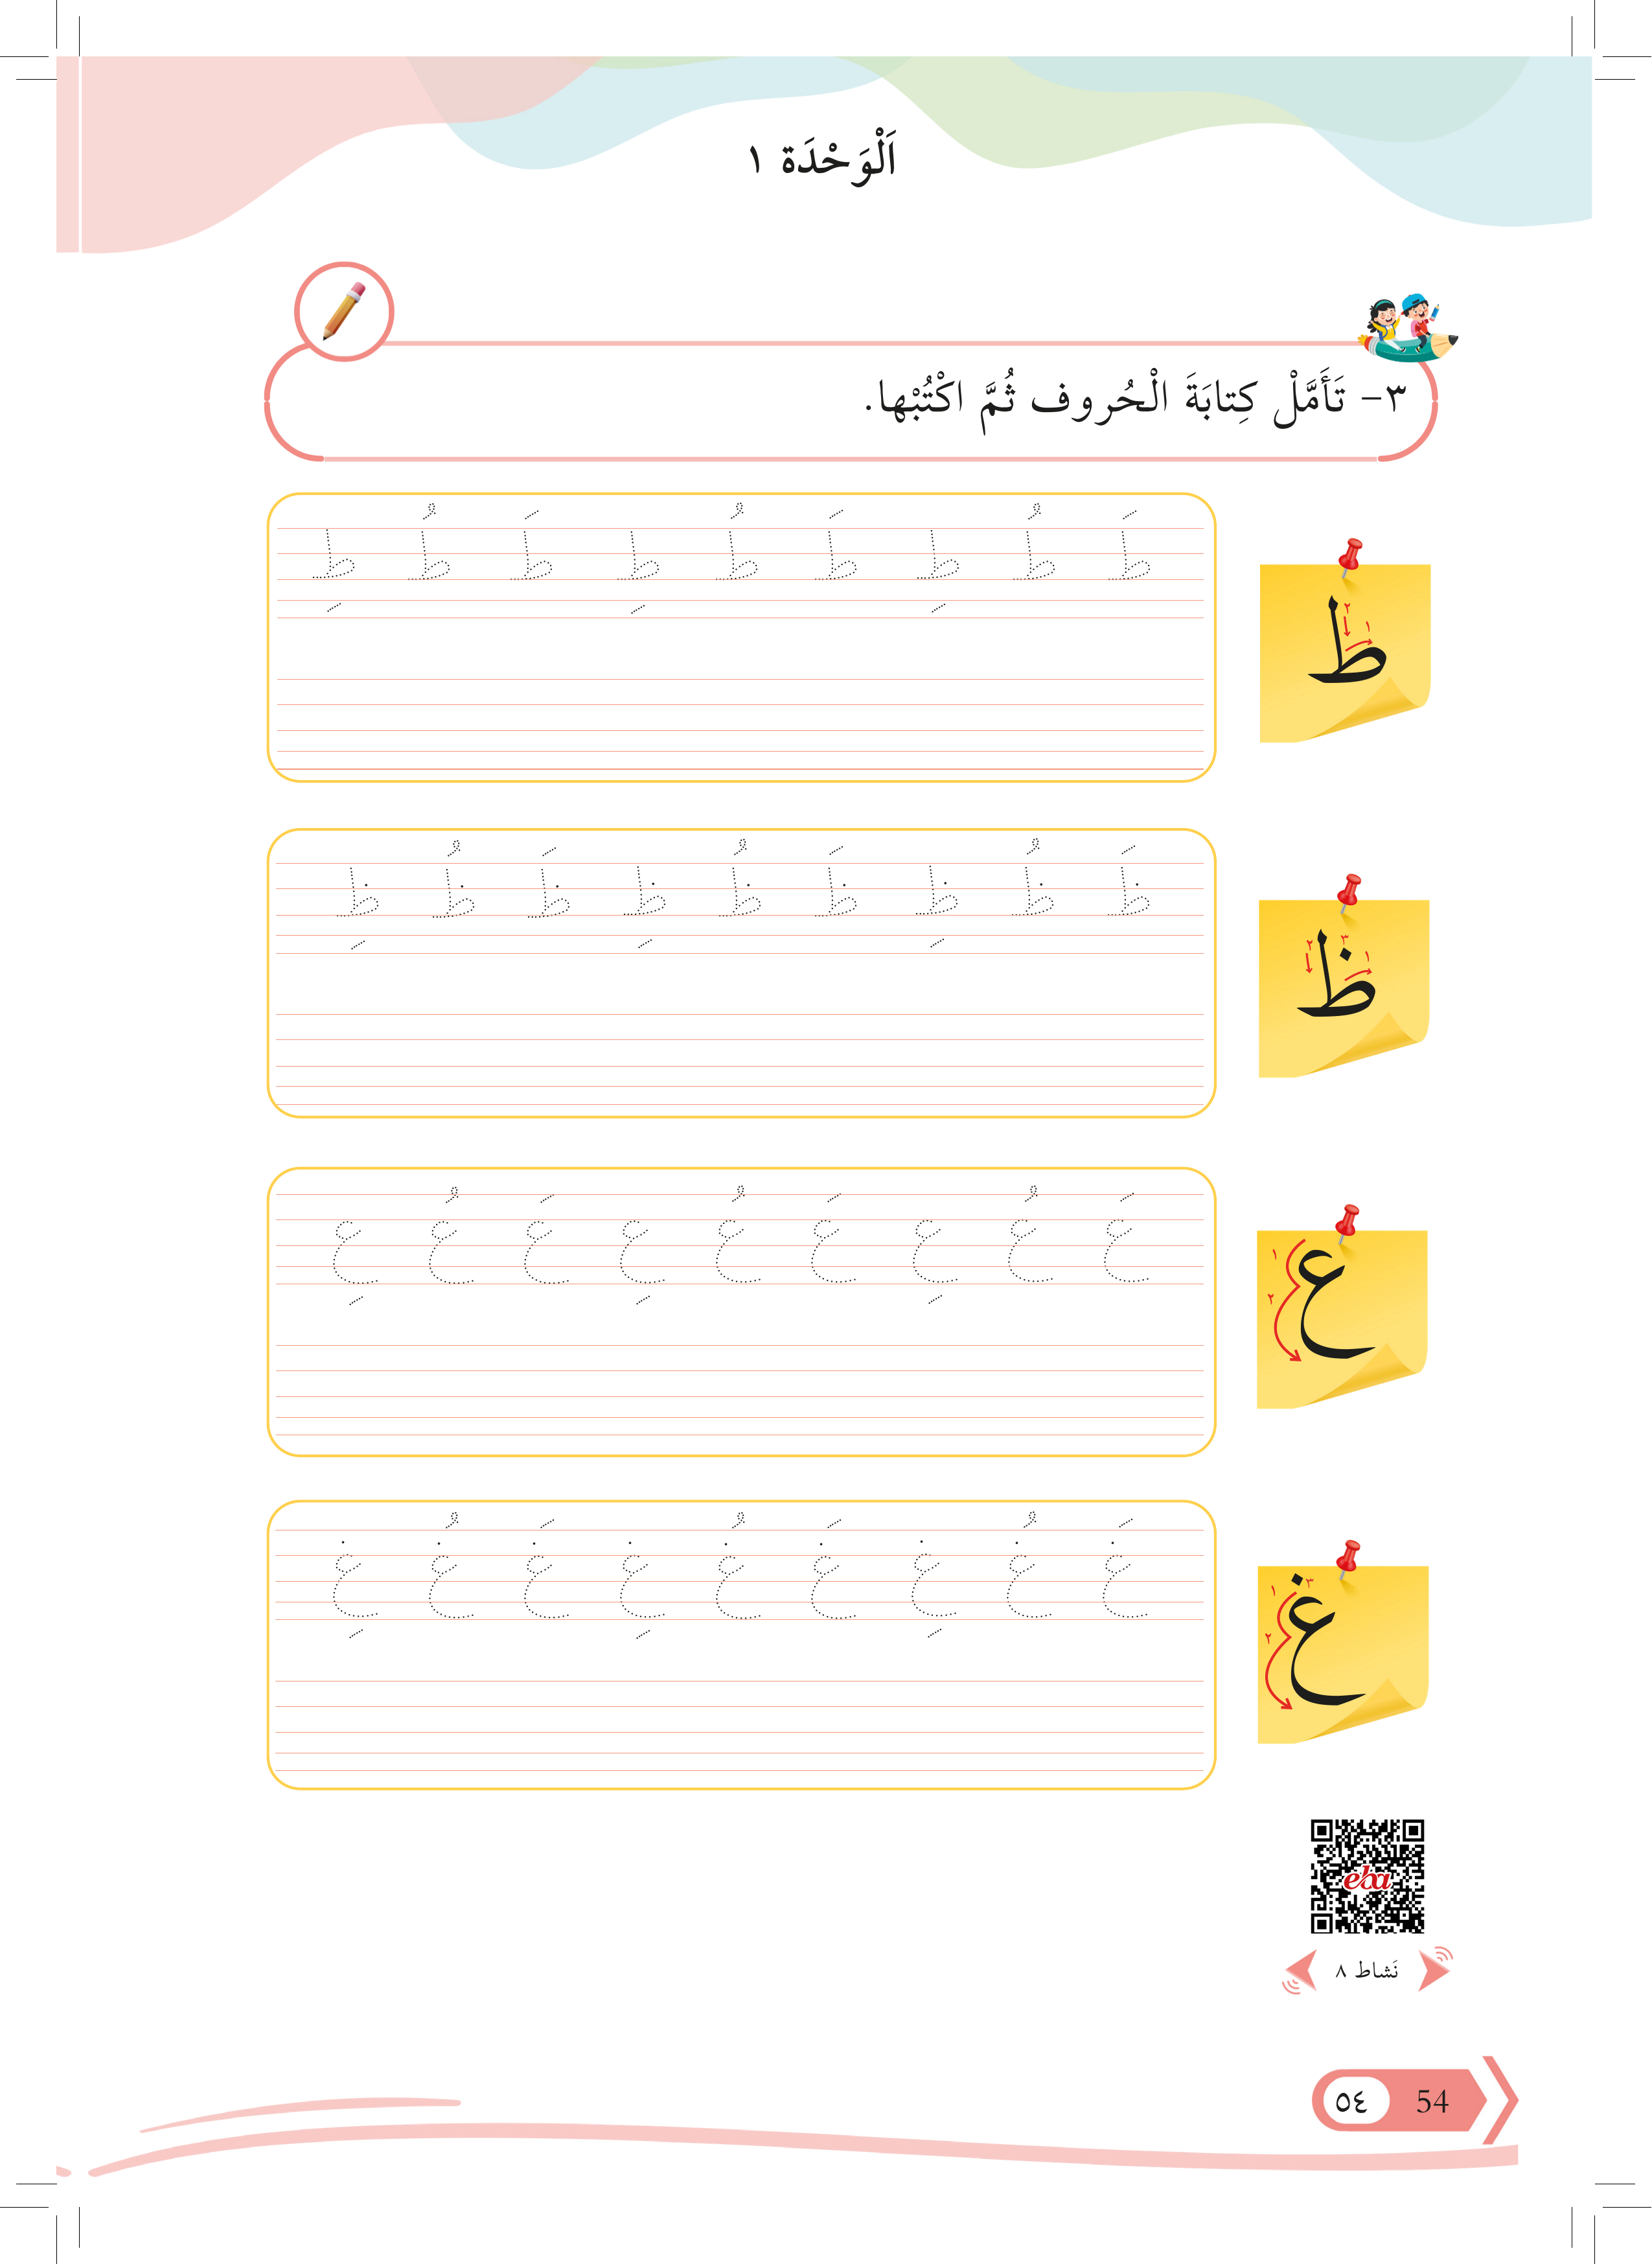 اَلْوَحْدَة ١
٣- تَأَمَّلْ كِتابَةَ الْحُروف ثُمَّ اكْتُبْها.
طَ طُ طِ طَ طُ طِ طَ طُ طِ
ط ١ ٢
ظَ ظُ ظِ ظَ ظُ ظِ ظَ ظُ ظِ
ظ ١ ٢ ٣
عَ عُ عِ عَ عُ عِ عَ عُ عِ
ع ١ ٢
غَ غُ غِ غَ غُ غِ غَ غُ غِ
غ ١ ٢ ٣
eba
نَشاط ٨
٥٤ 54